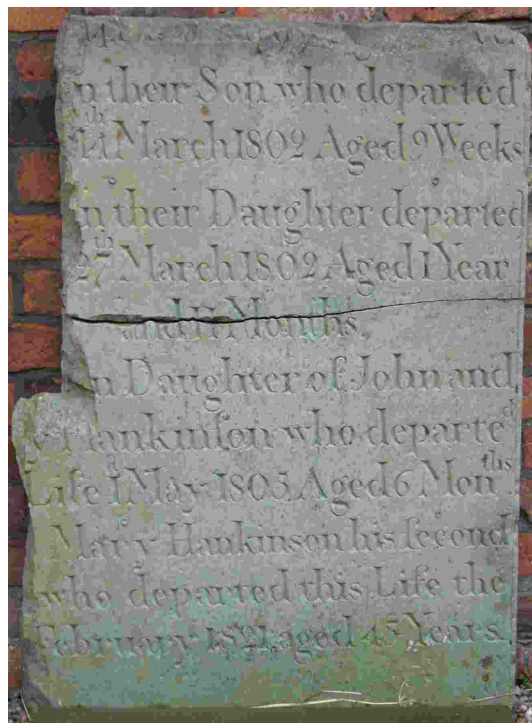 n their Son who departed
14th March 1802 Aged 9 Weeks
n their Daughter departed
27th March 1802 Aged 1 Year
and 11 Months.
n Daughter of John and
Hankinſon who departed
Life 1 May 1805 Aged 6 Months
Mary Hankinson his ſecond
who departed this Life the
February 1821 aged 45 Years.